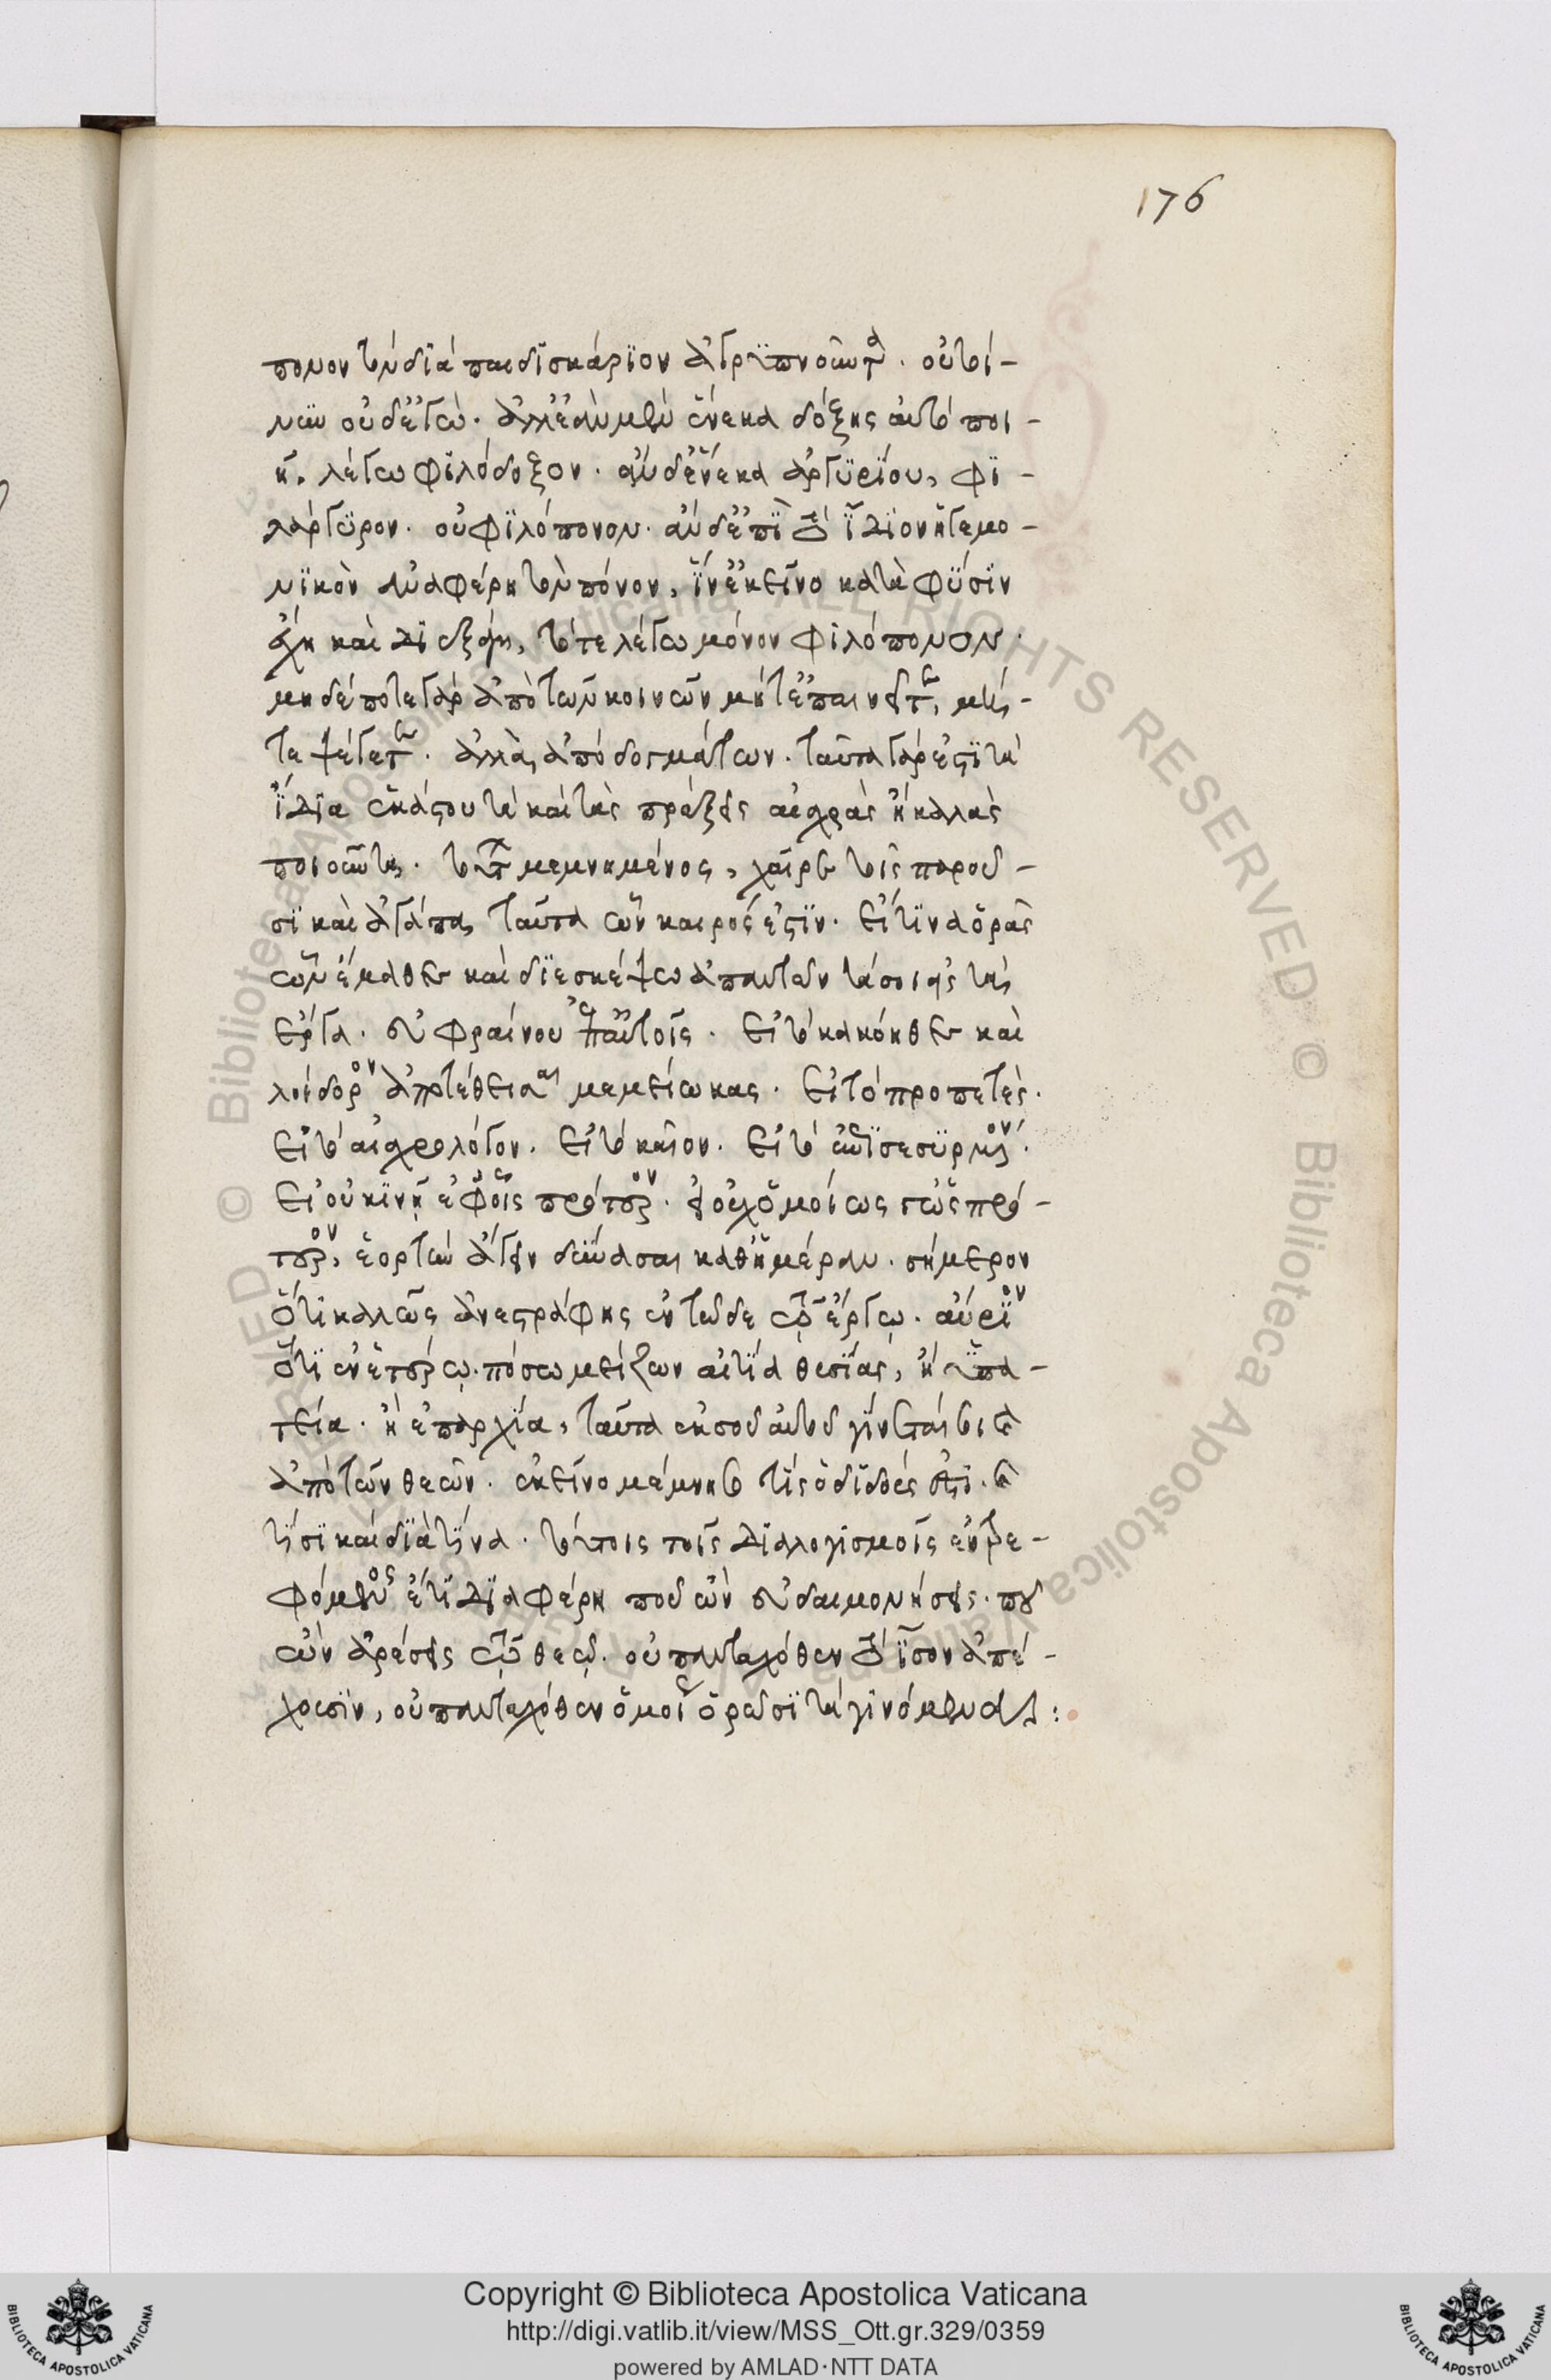 176
πονον τὸν διὰ παιδισκάριον ἀγρυπνοῦντα. οὐ τοί-
νυν οὐδ' ἐγώ. ἀλλ' ἐὰν μὲν ἕνεκα δόξης αὐτὸ ποι-
ῇ, λέγω φιλόδοξον. ἂν δ' ἕνεκα ἀργυρίου, φι-
λάργυρον. οὐ φιλόπονον. ἂν δ' ἐπὶ τὸ ἴδιον ἡγεμο-
νικὸν ἀναφέρῃ τὸν πόνον, ἵν' ἐκεῖνο κατὰ φύσιν
ἔχῃ καὶ διεξάγῃ, τότε λέγω μόνον φιλόπονον.
μηδέποτε γὰρ ἀπὸ τῶν κοινῶν μήτ' ἐπαινεῖτε, μή-
τε ψέγετε. ἀλλὰ ἀπὸ δογμάτων. ταῦτα γάρ ἐστι τὰ
ἴδια ἑκάστου τὰ καὶ τὰς πράξεις αἰσχρὰς ἢ καλὰς
ποιοῦντα. τούτων μεμνημένος, χαῖρε τοῖς παροῦ-
σι καὶ ἀγάπα ταῦτα ὧν καιρός ἐστιν. εἴ τινα ὁρᾷς
ὧν ἔμαθες καὶ διεσκέψω ἀπαντῶν τά σοι εἰς τὰ
ἔργα. εὐφραίνου ἐπ' αὐτοῖς. εἰ τὸ κακόηθες καὶ
λοίδορον ἀποτέθεισαι μεμείωκας. εἰ τὸ προπετές.
εἰ τὸ αἰσχρολόγον. εἰ τὸ εἰκαῖον. εἰ τὸ ἐπισεσυρμένον.
εἰ οὐ κινῇ ἐφ' οἷς πρότερον. εἰ οὐχ ὁμοίως γ' ὡς πρό-
τερον, ἑορτὴν ἄγειν δύνασαι καθ' ἡμέραν. σήμερον
ὅτι καλῶς ἀνεστράφης ἐν τῷδε τῷ ἔργῳ. αὔριον
ὅτι ἐν ἑτέρῳ. πόσῳ μείζων αἰτία θυσίας, ἢ ὑπα-
τεία. ἢ ἐπαρχία, ταῦτα ἐκ σοῦ αὐτοῦ γίνεταί σοι καὶ
ἀπὸ τῶν θεῶν. ἐκεῖνο μέμνησο τίς ὁ διδούς ἐστι. καὶ
τίσι καὶ διὰ τίνα. τούτοις τοῖς διαλογισμοῖς ἐντρε-
φόμενος ἔτι διαφέρῃ ποῦ ὢν εὐδαιμονήσεις. ποῦ
ὢν ἀρέσεις τῷ θεῷ. οὐ πανταχόθεν τὸ ἴσον ἀπέ-
χουσιν, οὐ πανταχόθεν ὁμοίως ὁρῶσι τὰ γινόμενα:
© Biblioteca Apostolica Vaticana ALL RIGHTS RESERVED © Biblioteca Apostolica Vaticana
Copyright © Biblioteca Apostolica Vaticana
http://digi.vatlib.it/view/MSS_Ott.gr.329/0359
powered by AMLAD·NTT DATA
BIBLIOTECA APOSTOLICA VATICANA
BIBLIOTECA APOSTOLICA VATICANA